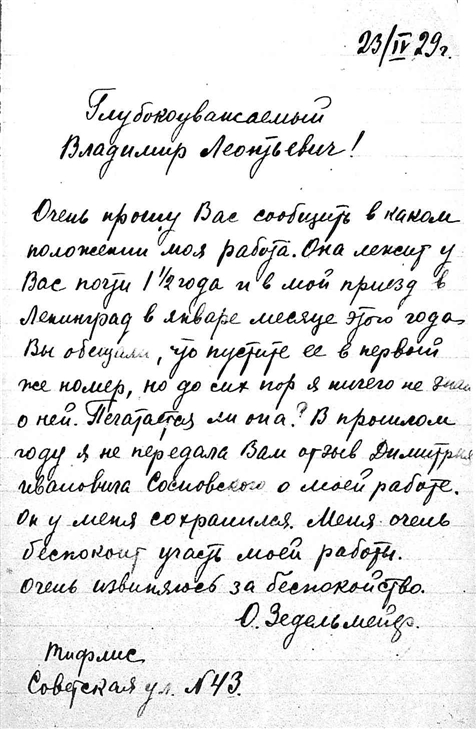 23/IV 29г.
Глубокоуважаемый
Владимир Леонтьевич!
Очень прошу Вас сообщить в каком
положении моя работа. Она лежит у
Вас почти 1 1/2 года и в мой приезд в
Ленинград в январе месяце этого года
Вы обещали, что пустите ее в первый
же номер, но до сих пор я ничего не знаю
о ней. Печатается ли она? В прошлом
году я не передала Вам отзыв Димитрия
Ивановича Сосновского о моей работе.
Он у меня сохранился. Меня очень
беспокоит участь моей работы.
Очень извиняюсь за беспокойство.
О. Зедельмейер.
Тифлис
Советская ул. N 43.